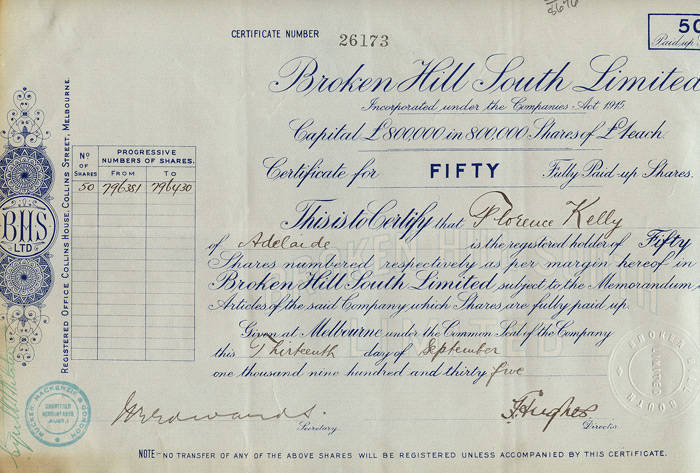 CERTIFICATE NUMBER 26173
50
Paid up
Broken Hill South Limited
Incorporated under the Companies Act 1915
Capital £800,000 in 800,000 Shares of £1 each.
Certificate for FIFTY Fully Paid-up Shares.
This is to Certify that Florence Kelly
of Adelaide is the registered holder of Fifty
Shares numbered respectively as per margin hereof in
Broken Hill South Limited subject to the Memorandum
Articles of the said Company which Shares are fully paid up.
Given at Melbourne under the Common Seal of the Company
this Thirteenth day of September
one thousand nine hundred and thirty five
Secretary.
F. Hughes
Director
NOTE - NO TRANSFER OF ANY OF THE ABOVE SHARES WILL BE REGISTERED UNLESS ACCOMPANIED BY THIS CERTIFICATE.
REGISTERED OFFICE COLLINS HOUSE, COLLINS STREET, MELBOURNE.
Nº OF SHARES
PROGRESSIVE NUMBERS OF SHARES.
FROM TO
50 796381 796430
BHS
LTD